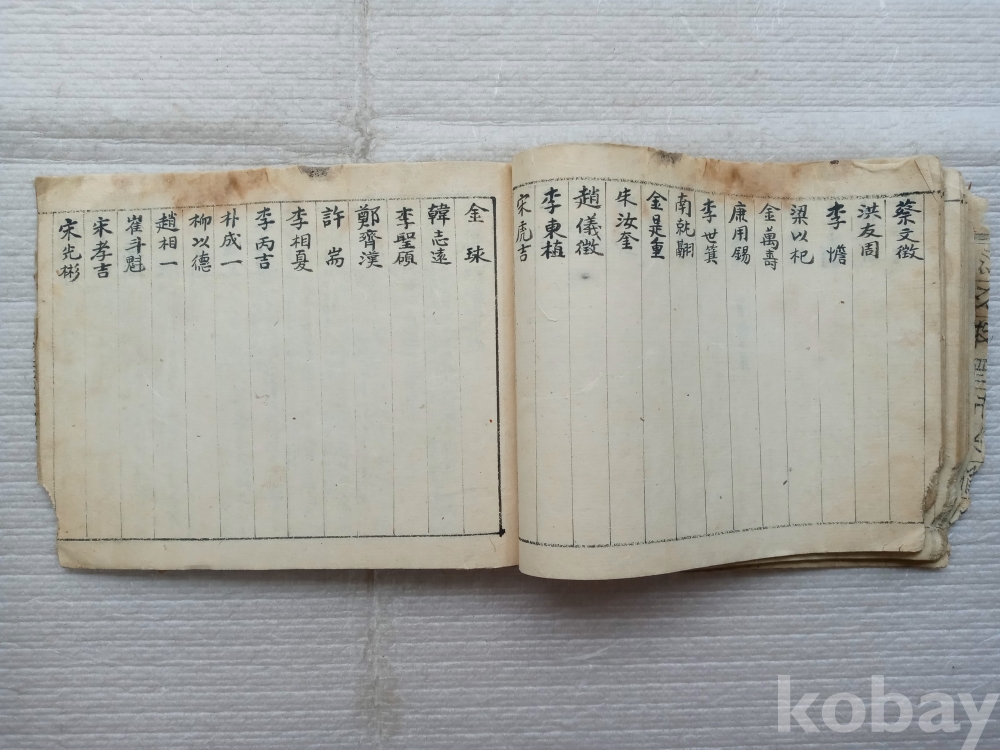 蔡文徵
洪友周
李憺
梁以杞
金萬壽
康用錫
李世箕
南就翮
金是重
朱汝奎
趙儀徵
李東植
宋虎吉
金球
韓志遠
李聖碩
鄭齊漢
許耑
李相夏
李丙吉
朴成一
柳以德
趙相一
崔斗魁
宋孝吉
宋光彬
kobay